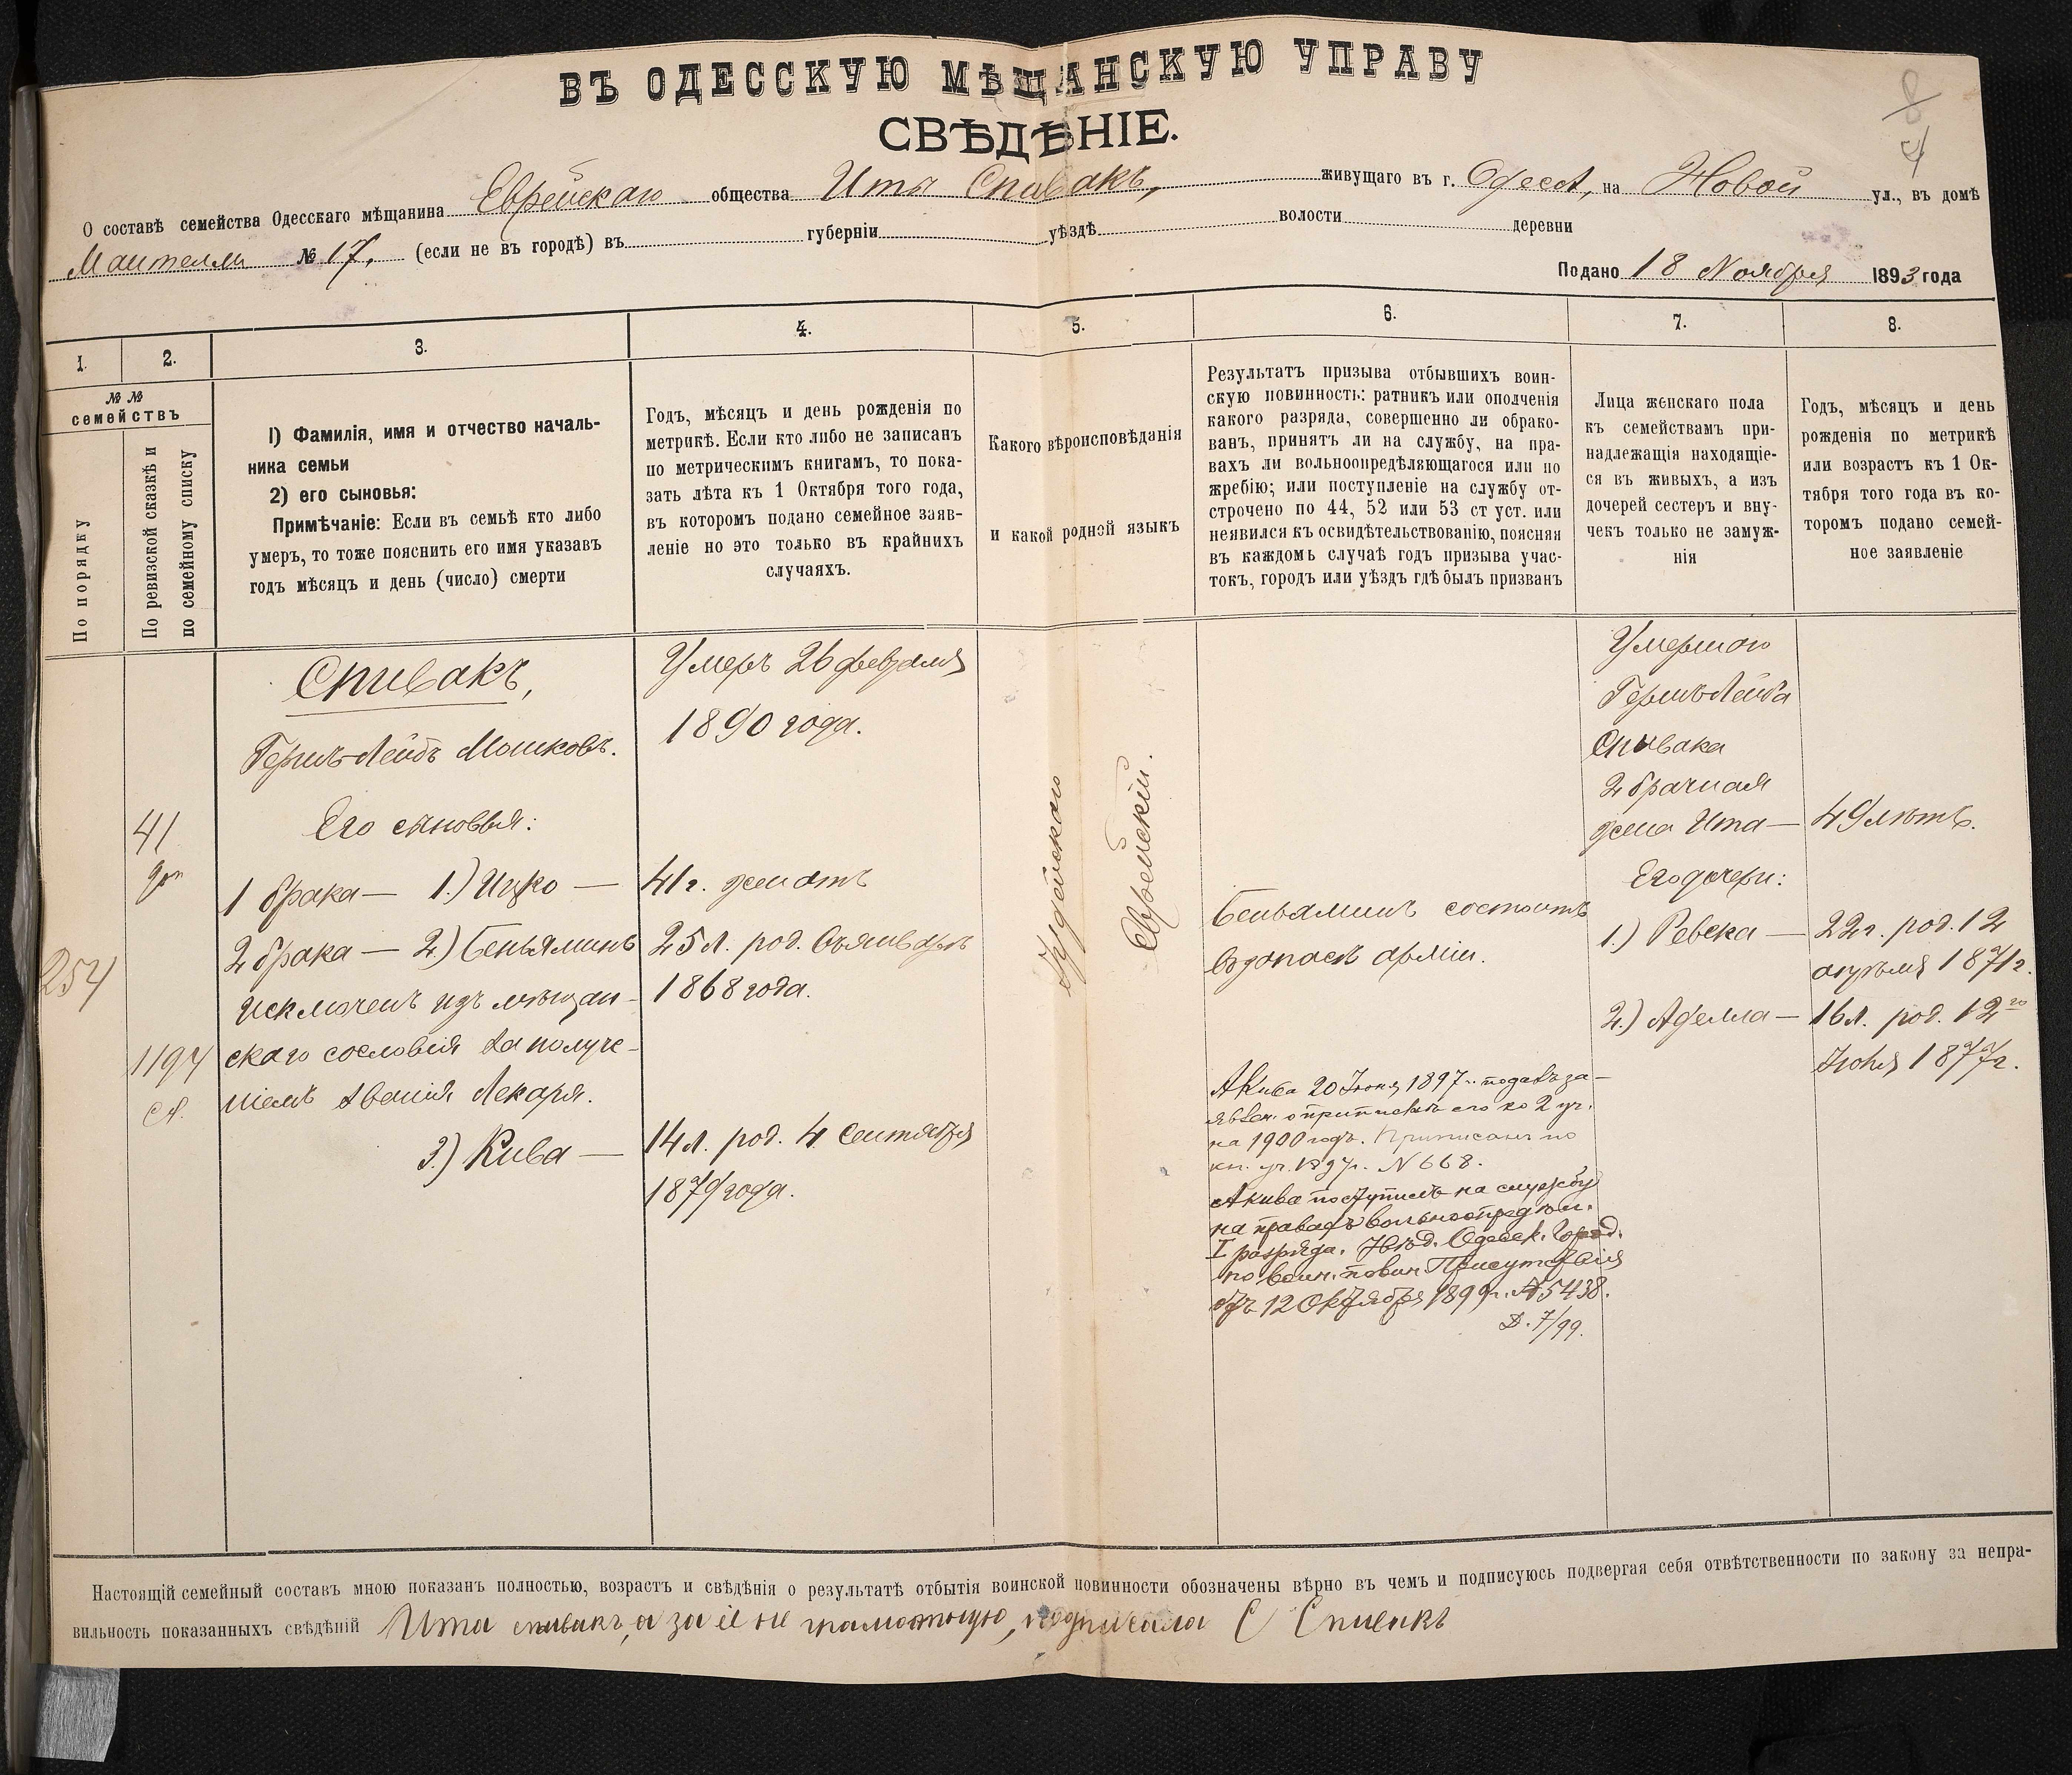 ВЪ ОДЕССКУЮ МѢЩАНСКУЮ УПРАВУ
СВѢДѢНІЕ.
8
4
О составѣ семейства Одесскаго мѣщанина Еврейскаго общества Иты Спивакъ, живущаго въ г. Одессѣ, на Новой ул., въ домѣ
№ 17, (если не въ городѣ) въ губерніи уѣздѣ волости деревни
Подано 18 Ноября 1893 года
1.
2.
3.
4.
5.
6.
7.
8.
№ №
семействъ
По порядку
По ревизской сказкѣ и
по семейному списку
1) Фамилія, имя и отчество началь-
ника семьи
2) его сыновья:
Примѣчаніе: Если въ семьѣ кто либо
умеръ, то тоже пояснить его имя указавъ
годъ мѣсяцъ и день (число) смерти
Годъ, мѣсяцъ и день рожденія по
метрикѣ. Если кто либо не записанъ
по метрическимъ книгамъ, то пока-
зать лѣта къ 1 Октября того года,
въ которомъ подано семейное заяв-
леніе но это только въ крайнихъ
случаяхъ.
Какого вѣроисповѣданія
и какой родной языкъ
Результатъ призыва отбывшихъ воин-
скую повинность: ратникъ или ополченія
какого разряда, совершенно ли обрако-
ванъ, принятъ ли на службу, на пра-
вахъ ли вольноопредѣляющагося или по
жребію; или поступленіе на службу от-
строчено по 44, 52 или 53 ст уст. или
неявился къ освидѣтельствованію, поясняя
въ каждомъ случаѣ годъ призыва учас-
токъ, городъ или уѣздъ гдѣ былъ призванъ
Лица женскаго пола
къ семействамъ при-
надлежащія находящіе-
ся въ живыхъ, а изъ
дочерей сестеръ и вну-
чекъ только не замуж-
нія
Годъ, мѣсяцъ и день
рожденія по метрикѣ
или возрастъ къ 1 Ок-
тября того года въ ко-
торомъ подано семей-
ное заявленіе
254
41
доп
1194
ст.
Спивакъ,
Гершъ-Лейбъ Мошковъ.
Его сыновья:
1 брака — 1.) Ицко —
2 брака — 2.) Беньяминъ
исключенъ изъ мѣщан-
скаго сословія за получе-
ніемъ званія Лекаря.
3.) Кива —
Умеръ 26 февраля
1890 года.
41 г. женатъ
25 л. род. 6 января
1868 года.
14 л. род. 4 Сентября
1879 года.
Іудейскаго
Еврейскій.
Беньяминъ состоитъ
въ запасѣ арміи.
Акива 20 Іюня 1897 г. подавъ за-
явлен. о припискѣ его ко 2 уч.
на 1900 годъ. Приписанъ по
кн. уч. 1897 г. № 668.
Акива поступилъ на службу
на правахъ вольноопредѣл.
I разряда. Увѣд. Одесск. Город.
по воин. повин. Присутствія
отъ 12 Октября 1899 г. № 5438.
Д. 7/99.
Умершаго
Гершъ-Лейба
Спивака
2 брачная
жена Ита —
Его дочери:
1.) Ревека —
2.) Аделла —
49 лѣтъ.
22 г. род. 12
апрѣля 1871 г.
16 л. род. 12го
Іюня 1877 г.
Настоящій семейный составъ мною показанъ полностью, возрастъ и свѣдѣнія о результатѣ отбытія воинской повинности обозначены вѣрно въ чемъ и подписуюсь подвергая себя отвѣтственности по закону за непра-
вильность показанныхъ свѣдѣній Ита спивакъ, а за её не грамотную, подписала С Спивакъ